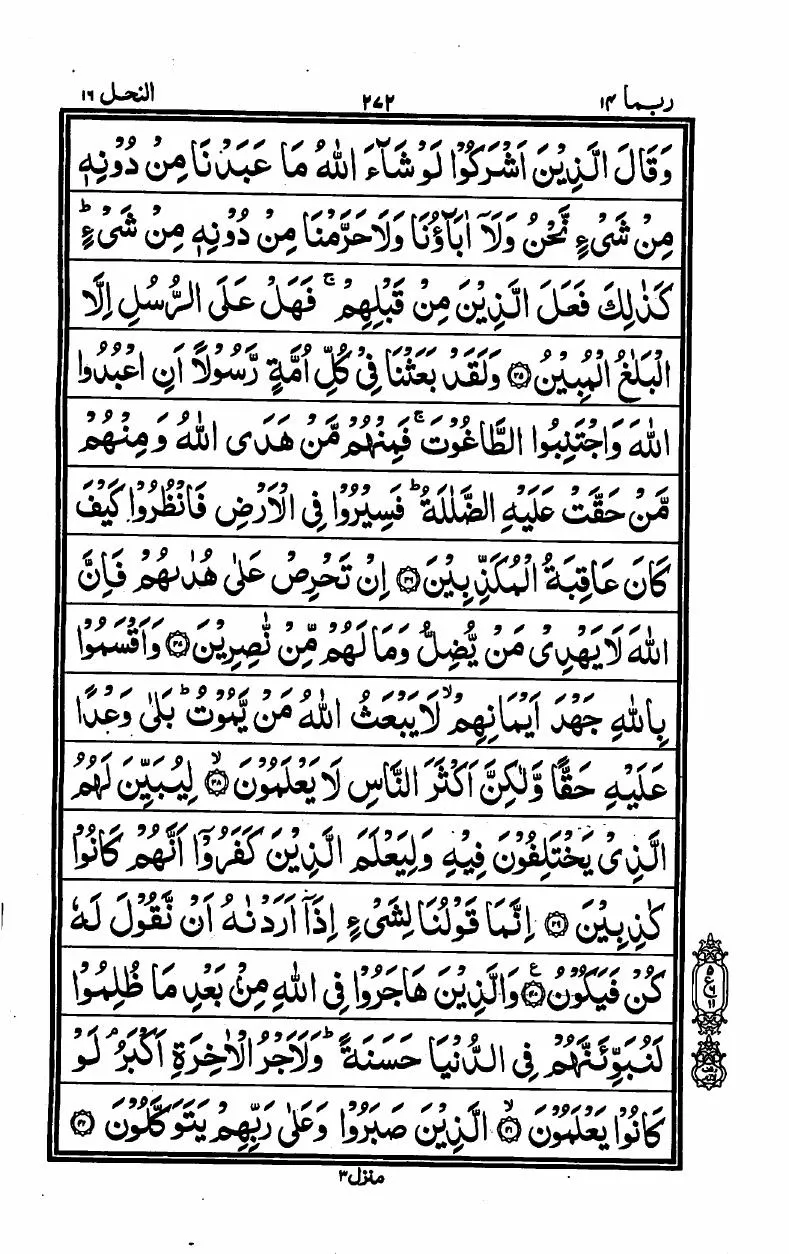 ربما ١۴ ٢٧٢ النحل ١٦
وَقَالَ الَّذِيْنَ اَشْرَكُوْا لَوْ شَآءَ اللّٰهُ مَا عَبَدْنَا مِنْ دُوْنِهٖ
مِنْ شَيْءٍ نَّحْنُ وَلَاۤ اٰبَآؤُنَا وَلَا حَرَّمْنَا مِنْ دُوْنِهٖ مِنْ شَيْءٍ ؕ
كَذٰلِكَ فَعَلَ الَّذِيْنَ مِنْ قَبْلِهِمْ ۚ فَهَلْ عَلَى الرُّسُلِ اِلَّا
الْبَلٰغُ الْمُبِيْنُ ﴿٣٥﴾ وَلَقَدْ بَعَثْنَا فِيْ كُلِّ اُمَّةٍ رَّسُوْلًا اَنِ اعْبُدُوا
اللّٰهَ وَاجْتَنِبُوا الطَّاغُوْتَ ۚ فَمِنْهُمْ مَّنْ هَدَى اللّٰهُ وَمِنْهُمْ
مَّنْ حَقَّتْ عَلَيْهِ الضَّلٰلَةُ ؕ فَسِيْرُوْا فِي الْاَرْضِ فَانْظُرُوْا كَيْفَ
كَانَ عَاقِبَةُ الْمُكَذِّبِيْنَ ﴿٣٦﴾ اِنْ تَحْرِصْ عَلٰى هُدٰىهُمْ فَاِنَّ
اللّٰهَ لَا يَهْدِيْ مَنْ يُّضِلُّ وَمَا لَهُمْ مِّنْ نّٰصِرِيْنَ ﴿٣٧﴾ وَاَقْسَمُوْا
بِاللّٰهِ جَهْدَ اَيْمَانِهِمْ ۙ لَا يَبْعَثُ اللّٰهُ مَنْ يَّمُوْتُ ؕ بَلٰى وَعْدًا
عَلَيْهِ حَقًّا وَّلٰكِنَّ اَكْثَرَ النَّاسِ لَا يَعْلَمُوْنَ ﴿٣٨﴾ ۙ لِيُبَيِّنَ لَهُمُ
الَّذِيْ يَخْتَلِفُوْنَ فِيْهِ وَلِيَعْلَمَ الَّذِيْنَ كَفَرُوْۤا اَنَّهُمْ كَانُوْا
كٰذِبِيْنَ ﴿٣٩﴾ اِنَّمَا قَوْلُنَا لِشَيْءٍ اِذَآ اَرَدْنٰهُ اَنْ نَّقُوْلَ لَهٗ
كُنْ فَيَكُوْنُ ﴿٤٠﴾ ع وَالَّذِيْنَ هَاجَرُوْا فِي اللّٰهِ مِنْۢ بَعْدِ مَا ظُلِمُوْا
لَنُبَوِّئَنَّهُمْ فِي الدُّنْيَا حَسَنَةً ؕ وَلَاَجْرُ الْاٰخِرَةِ اَكْبَرُ ۘ لَوْ
كَانُوْا يَعْلَمُوْنَ ﴿٤١﴾ ۙ الَّذِيْنَ صَبَرُوْا وَعَلٰى رَبِّهِمْ يَتَوَكَّلُوْنَ ﴿٤٢﴾
٥
ع٦
١١
منزل ٣